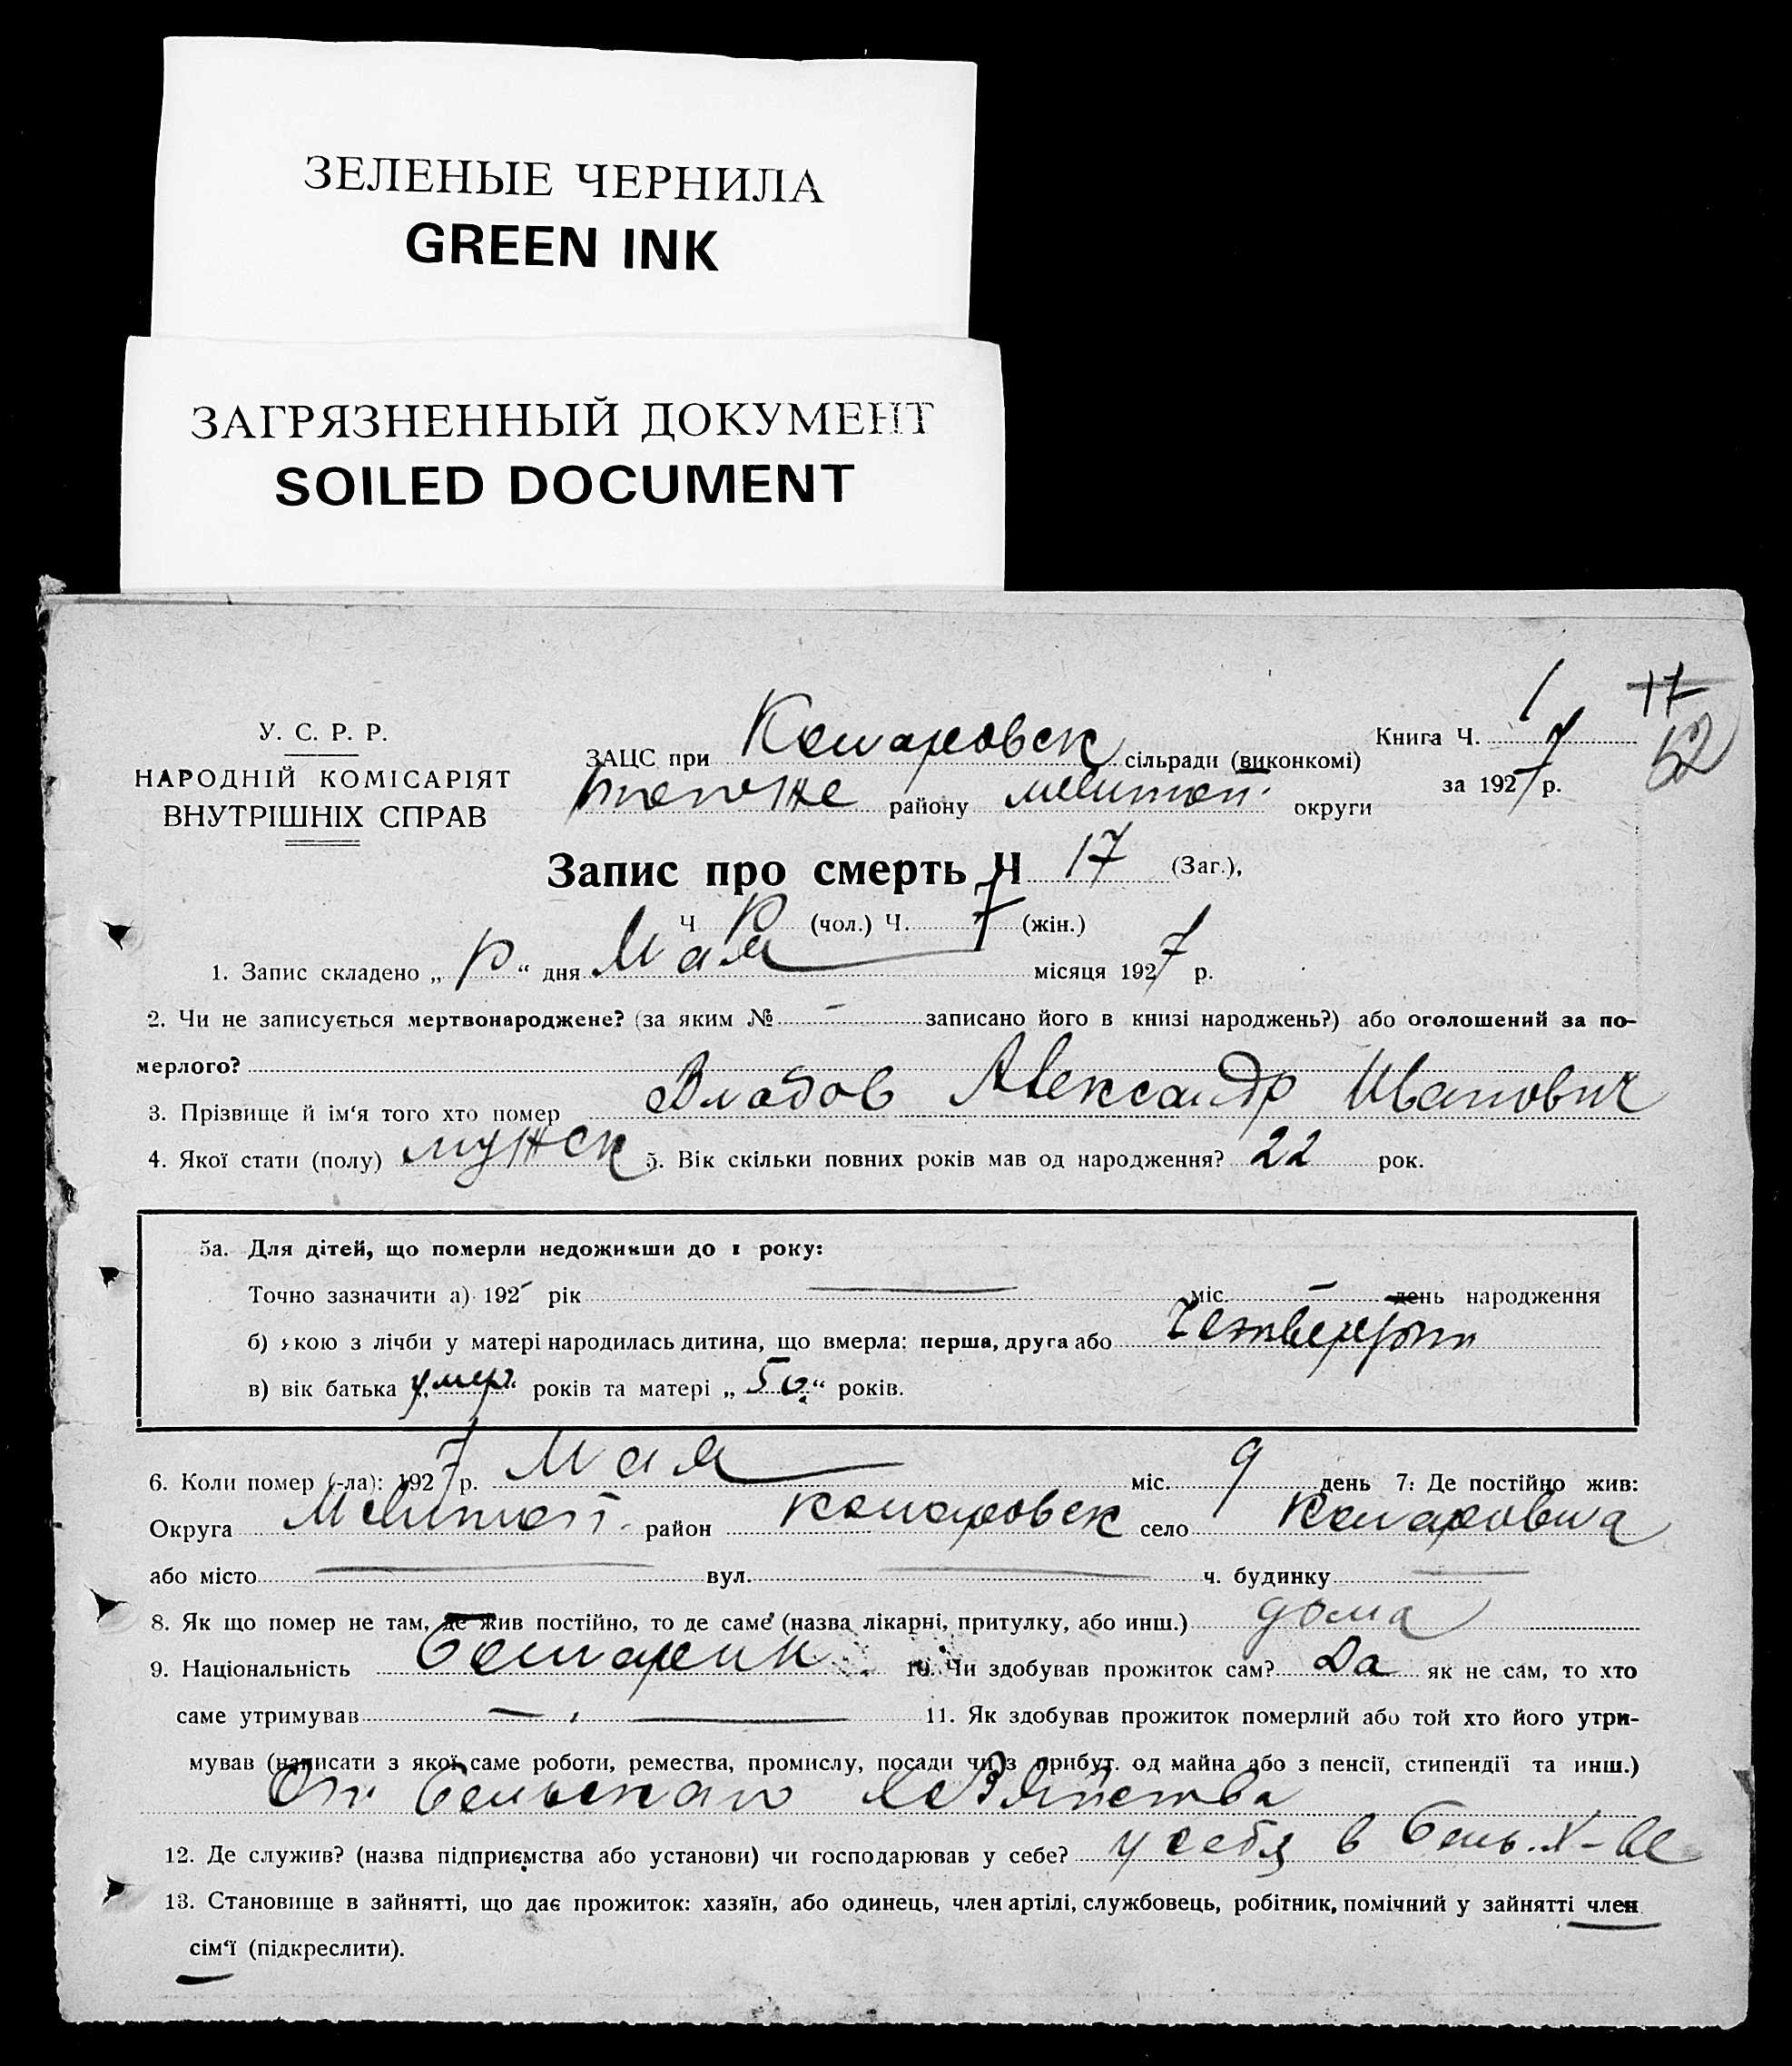 ЗЕЛЕНЫЕ ЧЕРНИЛА
GREEN INK
ЗАГРЯЗНЕННЫЙ ДОКУМЕНТ
SOILED DOCUMENT
17
52
У. С. Р. Р.
НАРОДНІЙ КОМІСАРІЯТ
ВНУТРІШНІХ СПРАВ
ЗАЦС при Комаровск сільради (виконкомі)
району Мелитоп. округи
Книга Ч. 1
за 1927 р.
Запис про смерть Ч 17 (Заг.),
Ч (чол.) Ч. 7 (жін.)
1. Запис складено „ “ дня Мая місяця 1927 р.
2. Чи не записується мертвонароджене? (за яким № – записано його в книзі народжень?) або оголошений за по-
мерлого?
3. Прізвище й ім‘я того хто помер Александр Иванович
4. Якої стати (полу) мужск 5. Вік скільки повних років мав од народження? 22 рок.
5а. Для дітей, що померли недоживши до 1 року:
Точно зазначити а) 192- рік — міс. — день народження
б) якою з лічби у матері народилась дитина, що вмерла: перша, друга або
в) вік батька „умер“ років та матері „50“ років.
6. Коли помер (-ла): 1927 р. Мая міс. 9 день 7: Де постійно жив:
Округа Мелитоп. район Комаровск село Комаровка
або місто — вул. — ч. будинку —
8. Як що помер не там, де жив постійно, то де саме? (назва лікарні, притулку, або инш.) дома
9. Національність 10. Чи здобував прожиток сам? Да як не сам, то хто
саме утримував — 11. Як здобував прожиток померлий або той хто його утри-
мував (написати з якої саме роботи, ремества, промислу, посади чи з прибут. од майна або з пенсії, стипендії та инш.)
От сельскаго хозяйства
12. Де служив? (назва підприємства або установи) чи господарював у себе? у себя в сель. х-ве
13. Становище в зайнятті, що дає прожиток: хазяїн, або одинець, член артілі, службовець, робітник, помічний у зайнятті член
сім‘ї (підкреслити).